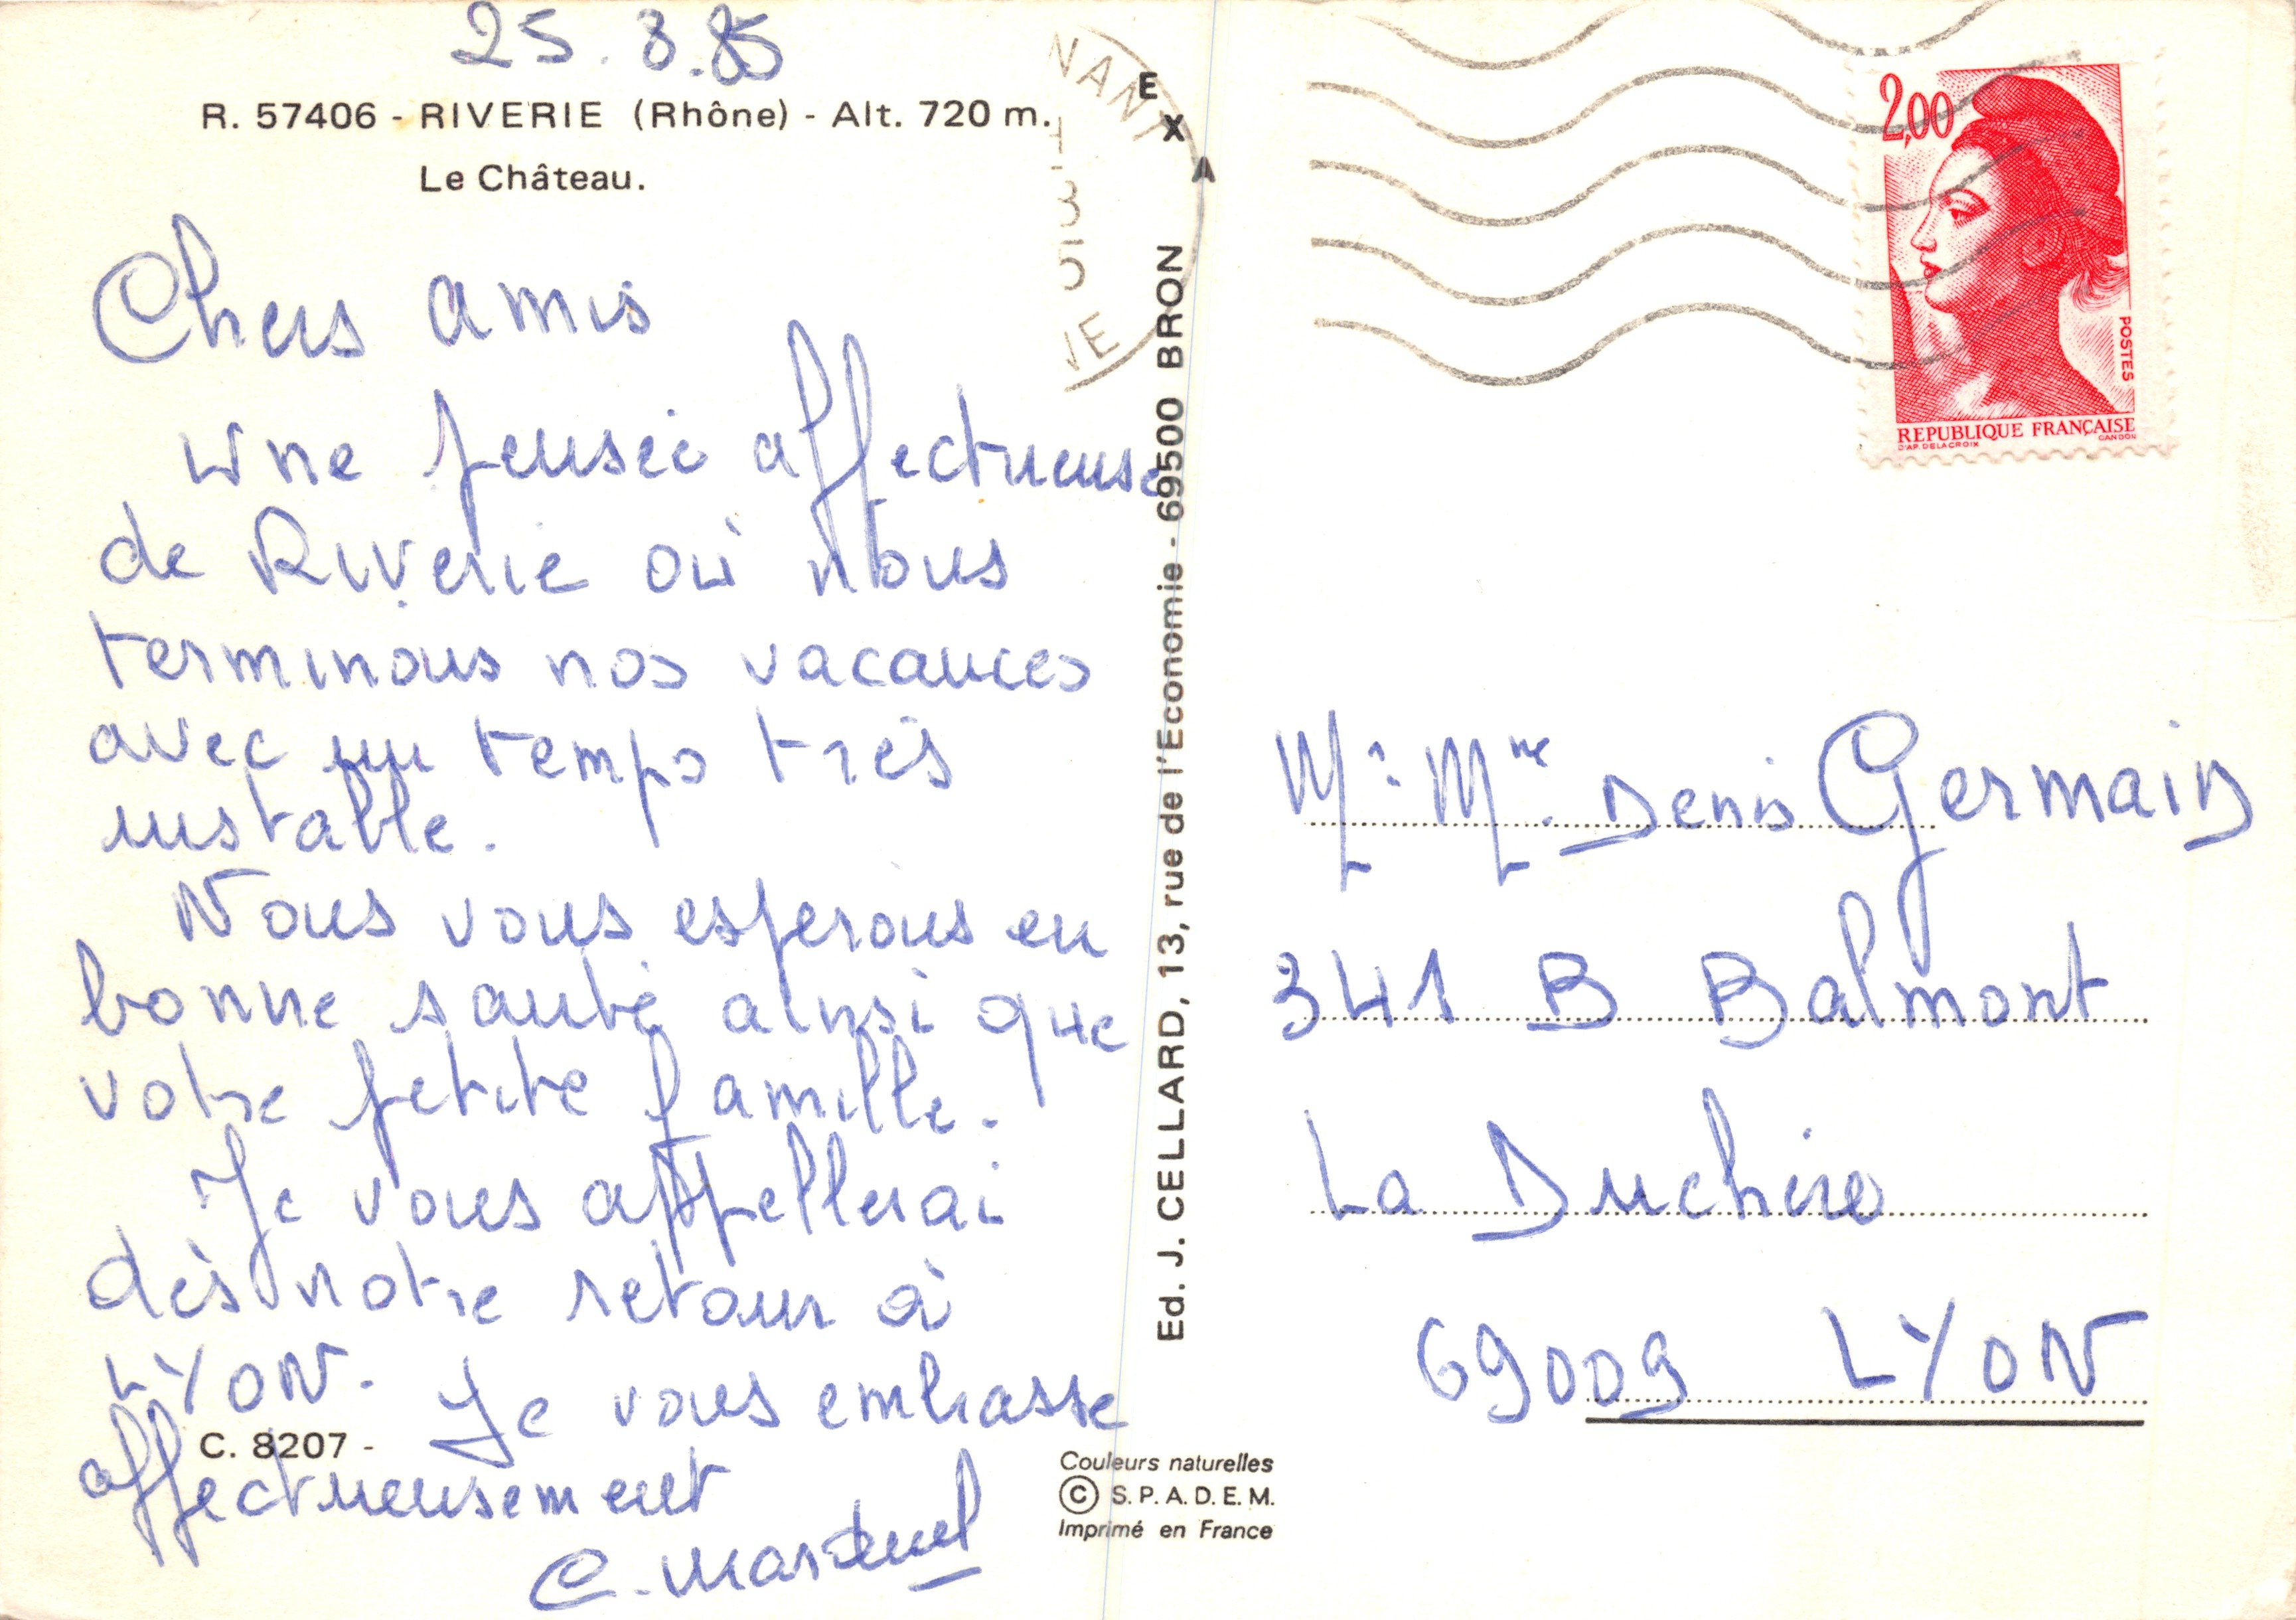 25.8.85
R. 57406 - RIVERIE (Rhône) - Alt. 720 m.
Le Château.
Chers amis
Une pensée affectueuse
de Riverie où nous
terminons nos vacances
avec un temps très
instable.
Nous vous esperons en
bonne santé ainsi que
votre petite famille.
Je vous appellerai
dès notre retour à
LYON. Je vous embrasse
affectueusement
C. 8207 -
E
X
A
Ed. J. CELLARD, 13, rue de l'Economie - 69500 BRON
Couleurs naturelles
© S.P.A.D.E.M.
Imprimé en France
NANT
2,00
POSTES
REPUBLIQUE FRANÇAISE
D'AP. DELACROIX GANDON
Mr Mme Denis Germain
341 B Balmont
La Duchère
69009 LYON